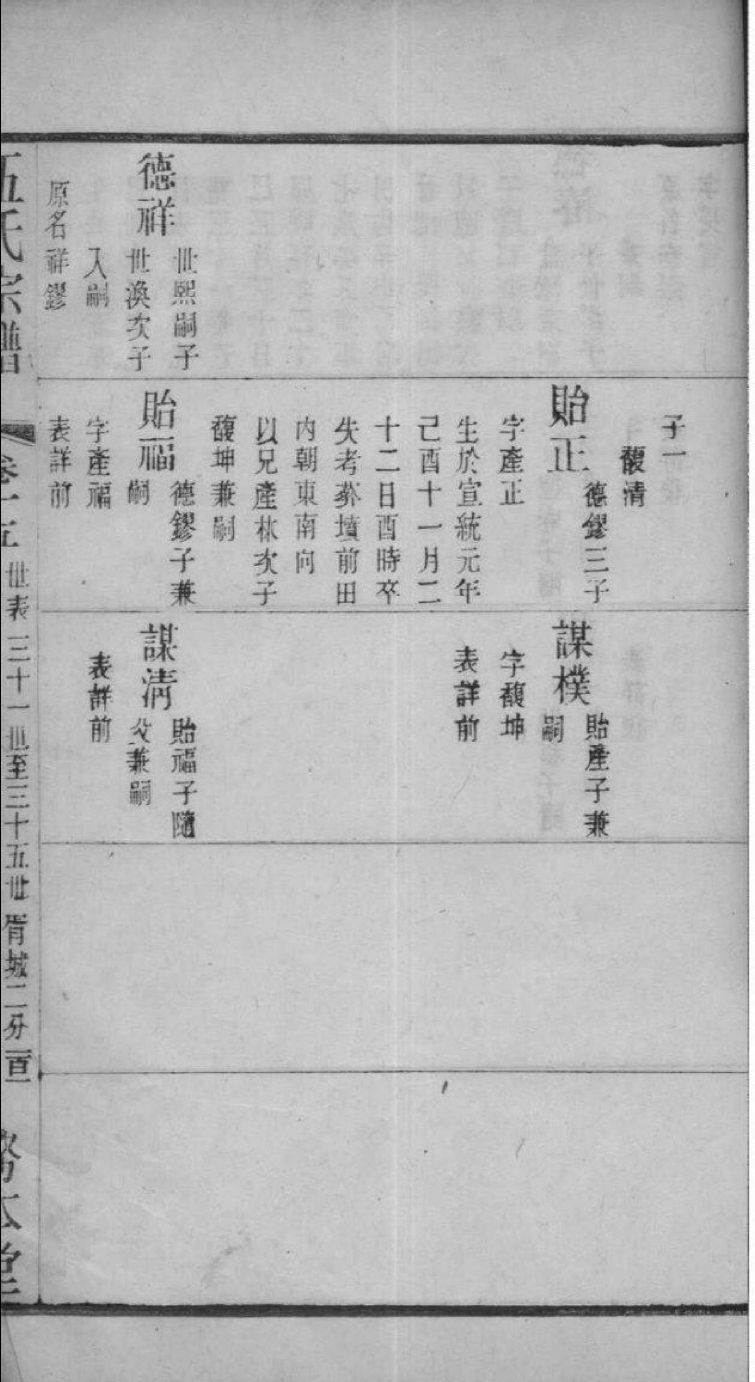 德祥
世熙嗣子
世渙次子
入嗣
原名祥鏐
子一
馥清
貽正
德鏐三子
字產正
生於宣統元年
己酉十一月二
十二日酉時卒
失考葬墳前田
内朝東南向
以兄產林次子
馥坤兼嗣
貽福
德鏐子兼
嗣
字產福
表詳前
謀樸
貽產子兼
嗣
字馥坤
表詳前
謀清
貽福子隨
父兼嗣
表詳前
伍氏宗譜
卷十五
世表
三十一世至三十五世
胥城二分